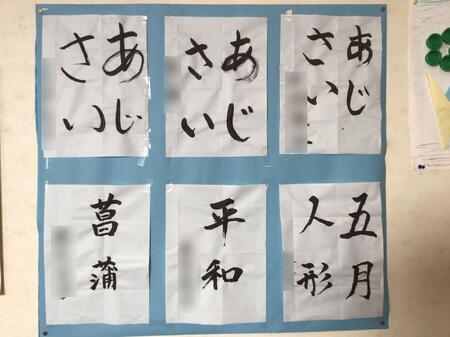 あじ
さい
あじ
さい
あじ
さい
五月
人形
平和
菖蒲